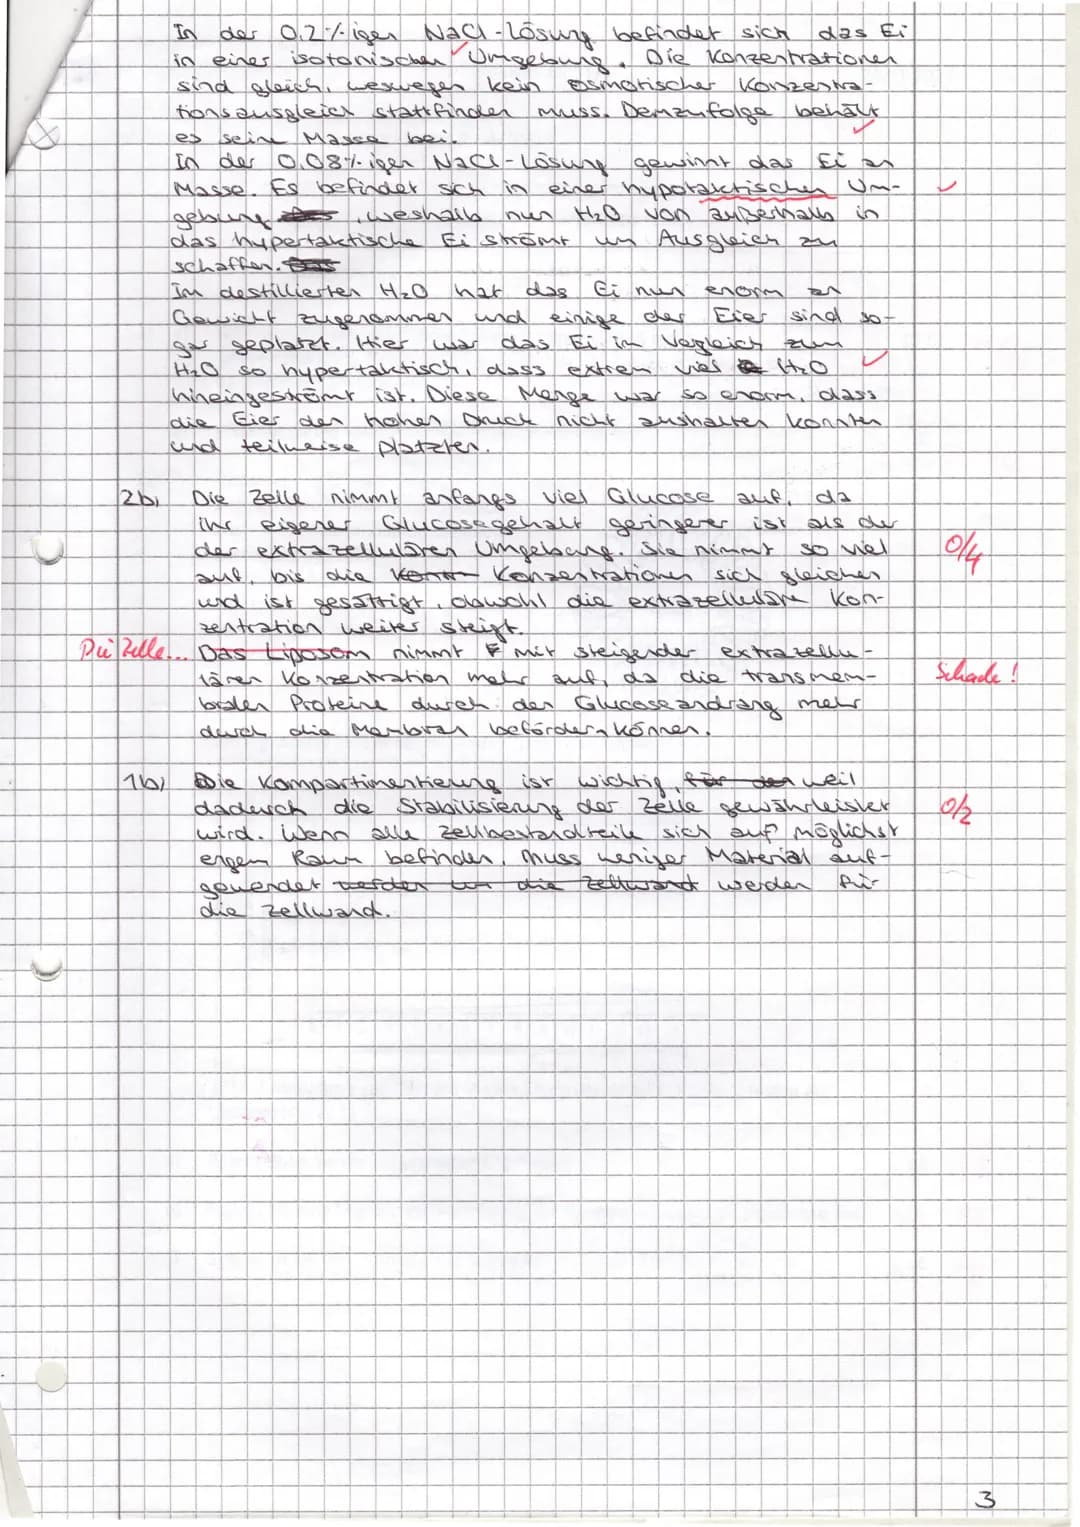 In der 0.2%-igen NaCl-Lösung befindet sich das Ei
in einer isotonischen Umgebung. Die Konzentrationen
sind gleich, weswegen kein osmotischer Konzentra-
tionsausgleich stattfinden muss. Demzufolge behält
es seine Masse bei.
In der 0.08%-igen NaCl-Lösung gewinnt das Ei an
Masse. Es befindet sich in einer hypotaktischen Um-
gebung, weshalb nun H₂O von außerhalb in
das hypertaktische Ei strömt um Ausgleich zu
schaffen.
Im destillierten H₂O hat das Ei nun enorm an
Gewicht zugenommen und einige der Eier sind so-
gar geplatzt. Hier war das Ei im Vergleich zum
H₂O so hypertaktisch, dass extrem viel H₂O
hineingeströmt ist. Diese Menge war so enorm, dass
die Eier den hohen Druck nicht aushalten konnten
und teilweise platzten.
2b) Die Zelle nimmt anfangs viel Glucose auf, da
ihr eigener Glucosegehalt geringerer ist als der
der extrazellulären Umgebung. Sie nimmt so viel 0/4
auf, bis die Konzentrationen sich gleichen
und ist gesättigt, obwohl die extrazelluläre Kon-
zentration weiter steigt.
Die Zelle... Das Liposom nimmt mit steigender extrazellu-
lären Konzentration mehr auf, da die transmem- Schade!
bralen Proteine durch den Glucoseandrang mehr
durch die Membran befördern können.
1b) Die Kompartimentierung ist wichtig, für den weil
dadurch die Stabilisierung der Zelle gewährleistet 0/2
wird. Wenn alle Zellbestandteile sich auf möglichst
engem Raum befinden, muss weniger Material auf-
gewendet werden um die Zellwand werden für
die Zellwand.
3